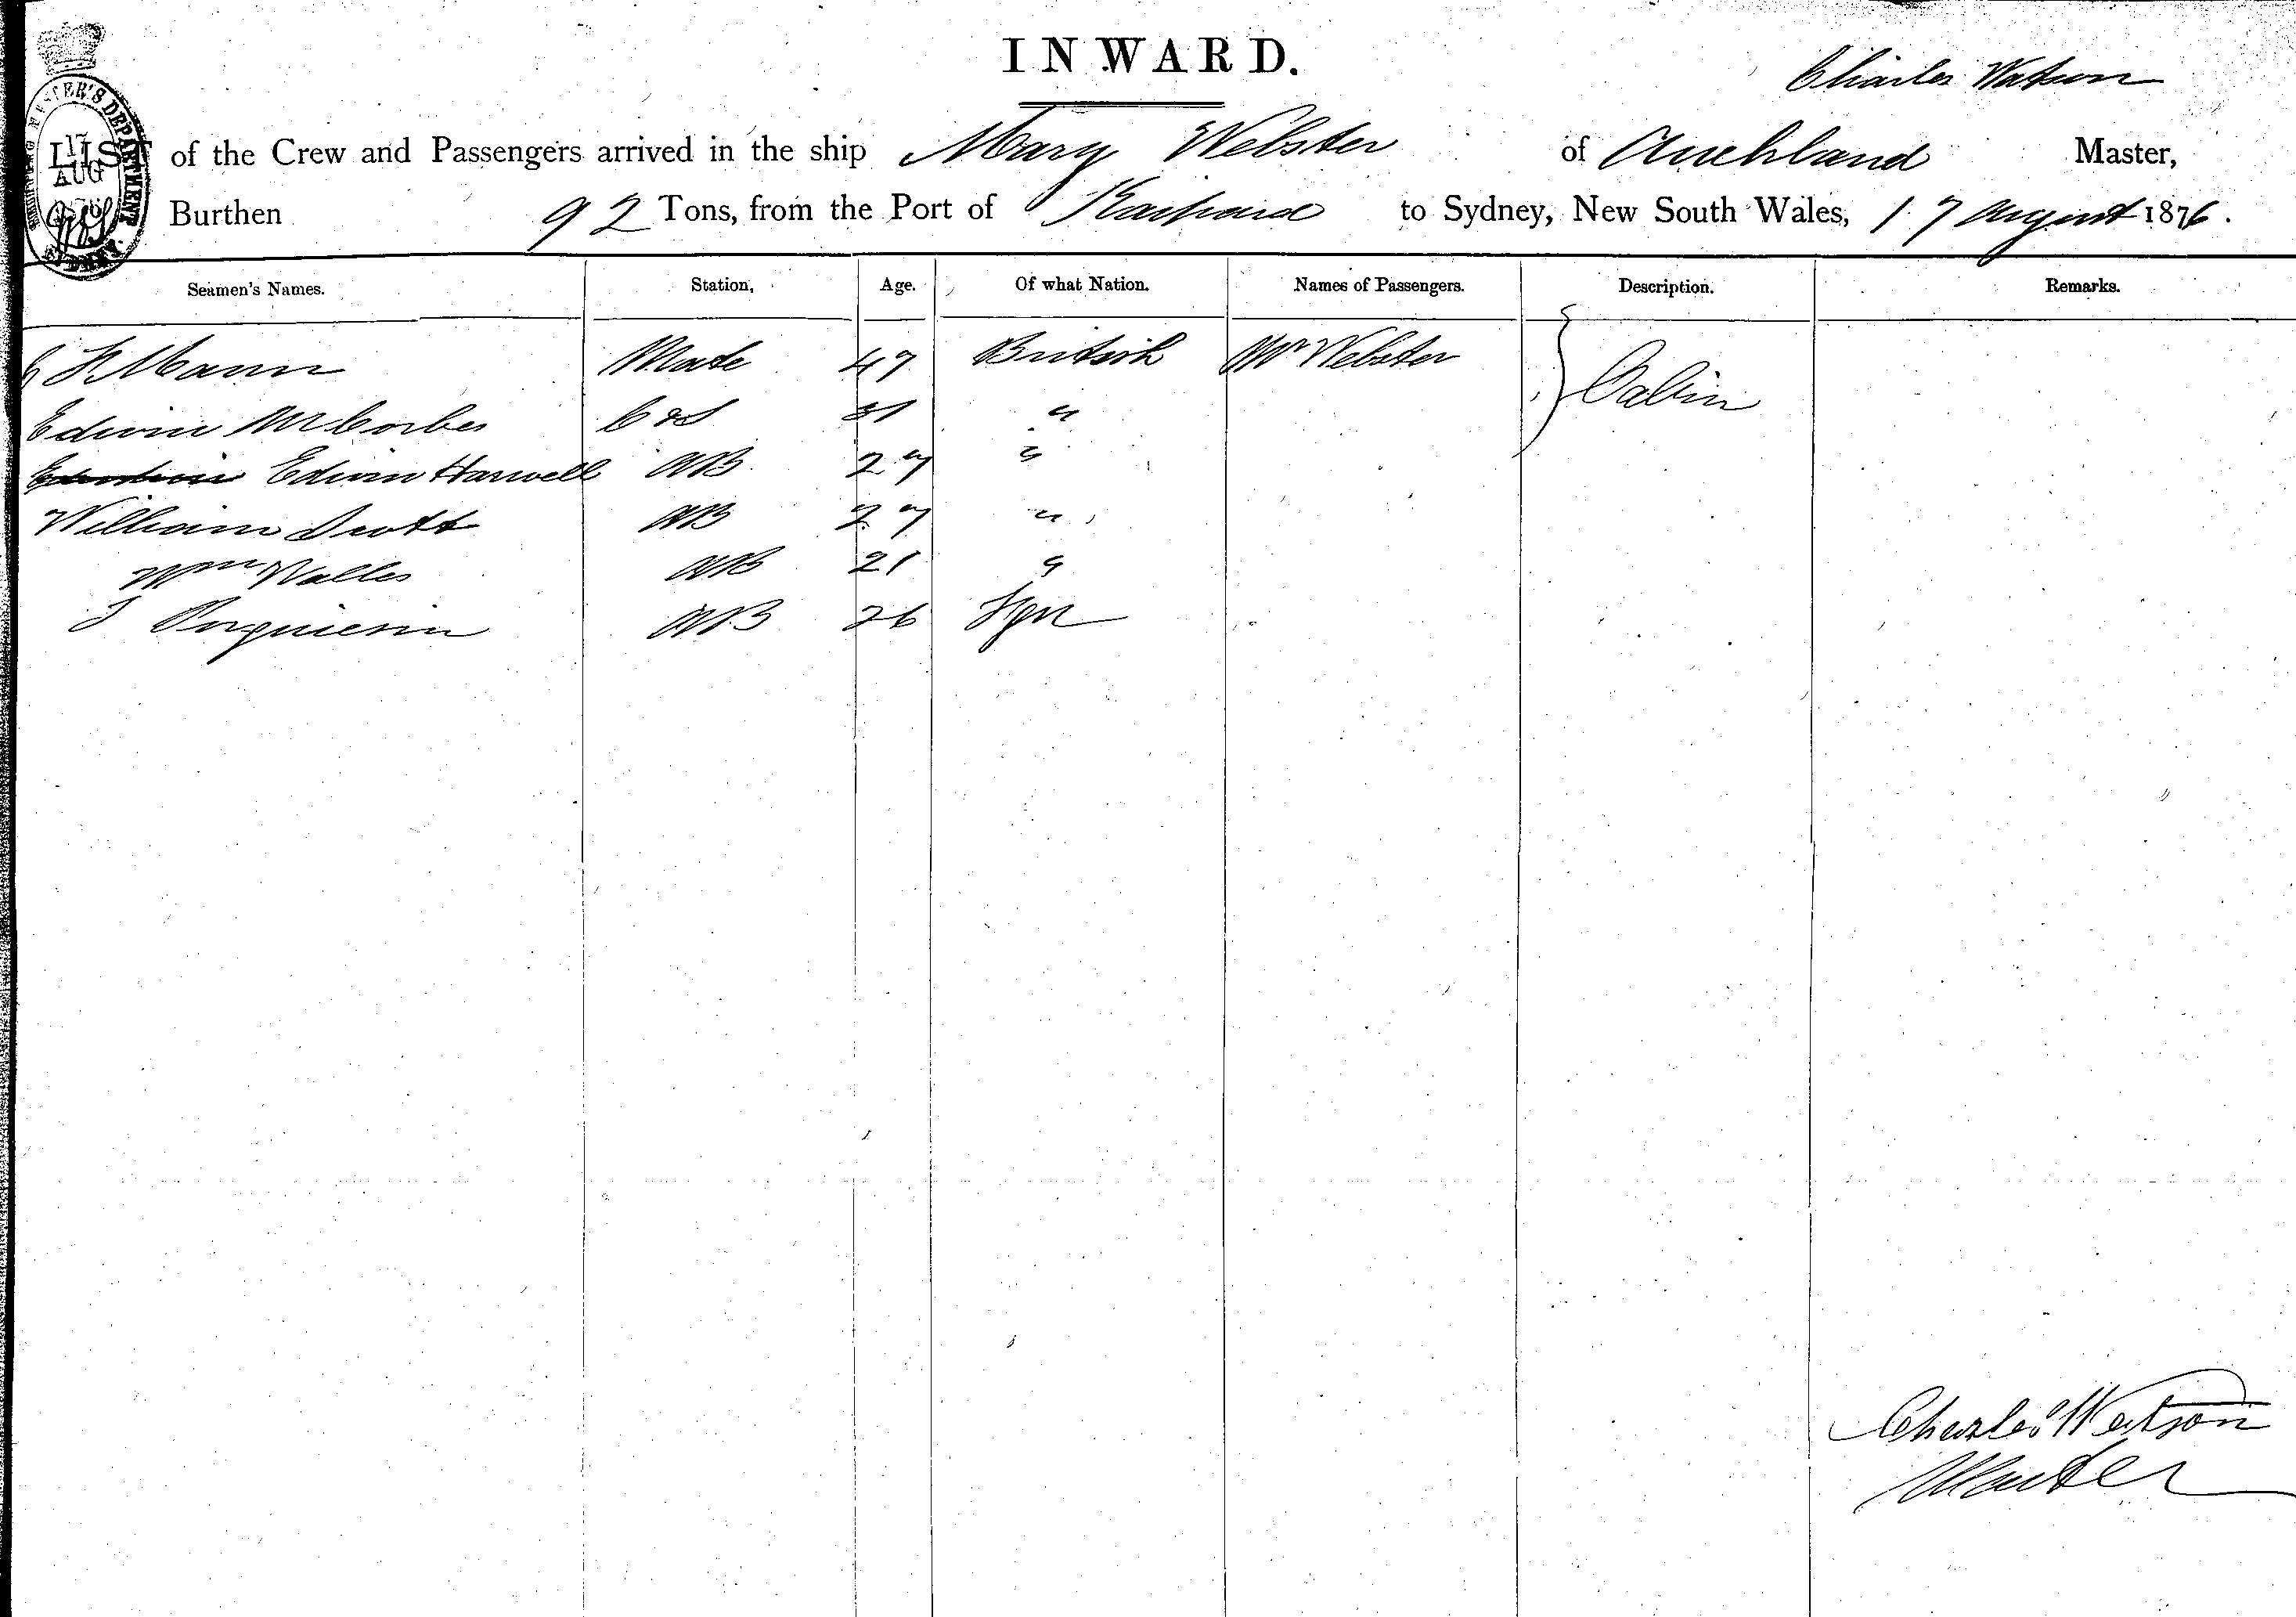 INWARD.
Charles Watson
LIST of the Crew and Passengers arrived in the ship Mary Webster of Auckland Master,
Burthen 92 Tons, from the Port of to Sydney, New South Wales, 17 August 1876.
17 AUG
Seamen's Names. Station, Age. Of what Nation. Names of Passengers. Description. Remarks.
Mann Mate 47 British Mr Webster Cabin
Edwin " 
Edwin Harwell AB 27 "
William Scott AB 27 "
Wm AB 21 "
J AB 26
Charles Watson
Master